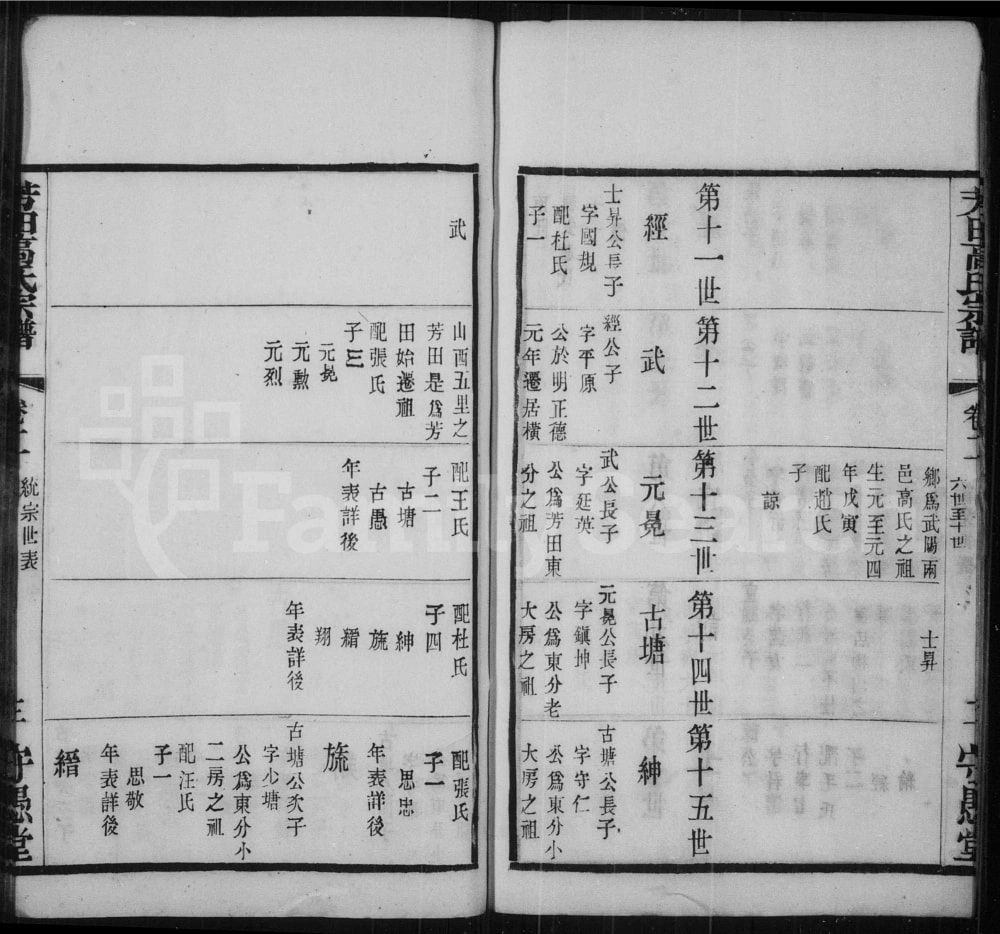 芳田高氏宗譜
卷二
六世至十世
守愚堂
鄉爲武陽兩
邑高氏之祖
生元至元四
年戊寅
配趙氏
子
諒
士昇
第十一世
經
士昇公長子
字國規
配杜氏
子一
第十二世
武
經公子
字平原
公於明正德
元年遷居橫
第十三世
元晃
武公長子
字廷英
公爲芳田東
分之祖
第十四世
古塘
元晃公長子
字鎭坤
公爲東分老
大房之祖
第十五世
紳
古塘公長子
字守仁
公爲東分小
大房之祖
武
山酉五里之
芳田是爲芳
田始遷祖
配張氏
子三
元晃
元勳
元烈
配王氏
子二
古塘
古愚
年表詳後
配杜氏
子四
紳
旒
縉
翔
年表詳後
配張氏
子一
思忠
年表詳後
旒
古塘公次子
字少塘
公爲東分小
二房之祖
配汪氏
子一
思敬
年表詳後
縉
芳田高氏宗譜
統宗世表
三
守愚堂
FamilySearch